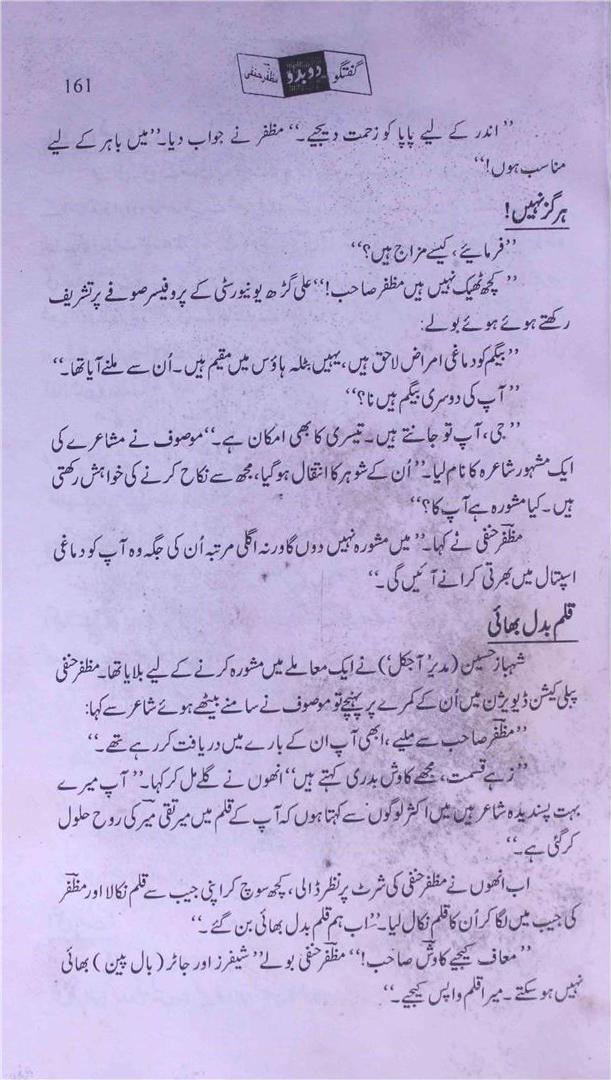 161
گفتگو دوبدو مظفر حنفی
’’اندر کے لیے پاپا کو زحمت دیجیے۔‘‘ مظفر نے جواب دیا۔ ’’میں باہر کے لیے
مناسب ہوں!‘‘
ہرگز نہیں!
’’فرمایئے، کیسے مزاج ہیں؟‘‘
’’کچھ ٹھیک نہیں ہیں مظفر صاحب!‘‘ علی گڑھ یونیورسٹی کے پروفیسر صوفے پر تشریف
رکھتے ہوئے ہوئے بولے:
’’بیگم کو دماغی امراض لاحق ہیں، یہیں بٹلہ ہاؤس میں مقیم ہیں۔ اُن سے ملنے آیا تھا۔‘‘
’’آپ کی دوسری بیگم ہیں نا؟‘‘
’’جی، آپ تو جانتے ہیں۔ تیسری کا بھی امکان ہے۔‘‘ موصوف نے مشاعرے کی
ایک مشہور شاعرہ کا نام لیا۔ ’’اُن کے شوہر کا انتقال ہو گیا، مجھ سے نکاح کرنے کی خواہش رکھتی
ہیں۔ کیا مشورہ ہے آپ کا؟‘‘
مظفرؔ حنفی نے کہا۔ ’’میں مشورہ نہیں دوں گا ورنہ اگلی مرتبہ اُن کی جگہ وہ آپ کو دماغی
اسپتال میں بھرتی کرانے آئیں گی۔‘‘
قلم بدل بھائی
شہباز حسین (مدیر ’آجکل‘) نے ایک معاملے میں مشورہ کرنے کے لیے بلایا تھا۔ مظفر حنفی
پبلی کیشن ڈیویژن میں اُن کے کمرے پر پہنچے تو موصوف نے سامنے بیٹھے ہوئے شاعر سے کہا:
’’مظفرؔ صاحب سے ملیے، ابھی آپ ان کے بارے میں دریافت کر رہے تھے۔‘‘
’’زہے قسمت، مجھے کاوشؔ بدری کہتے ہیں‘‘ انھوں نے گلے مل کر کہا۔ ’’آپ میرے
بہت پسندیدہ شاعر ہیں میں اکثر لوگوں سے کہتا ہوں کہ آپ کے قلم میں میر تقی میرؔ کی روح حلول
کر گئی ہے۔‘‘
اب انھوں نے مظفر حنفی کی شرٹ پر نظر ڈالی، کچھ سوچ کر اپنی جیب سے قلم نکالا اور مظفرؔ
کی جیب میں لگا کر اُن کا قلم نکال لیا۔ ’’اب ہم قلم بدل بھائی بن گئے۔‘‘
’’معاف کیجیے کاوشؔ صاحب!‘‘ مظفرؔ حنفی بولے ’’شیفرز اور جاٹر (بال پین) بھائی
نہیں ہو سکتے۔ میرا قلم واپس کیجیے۔‘‘